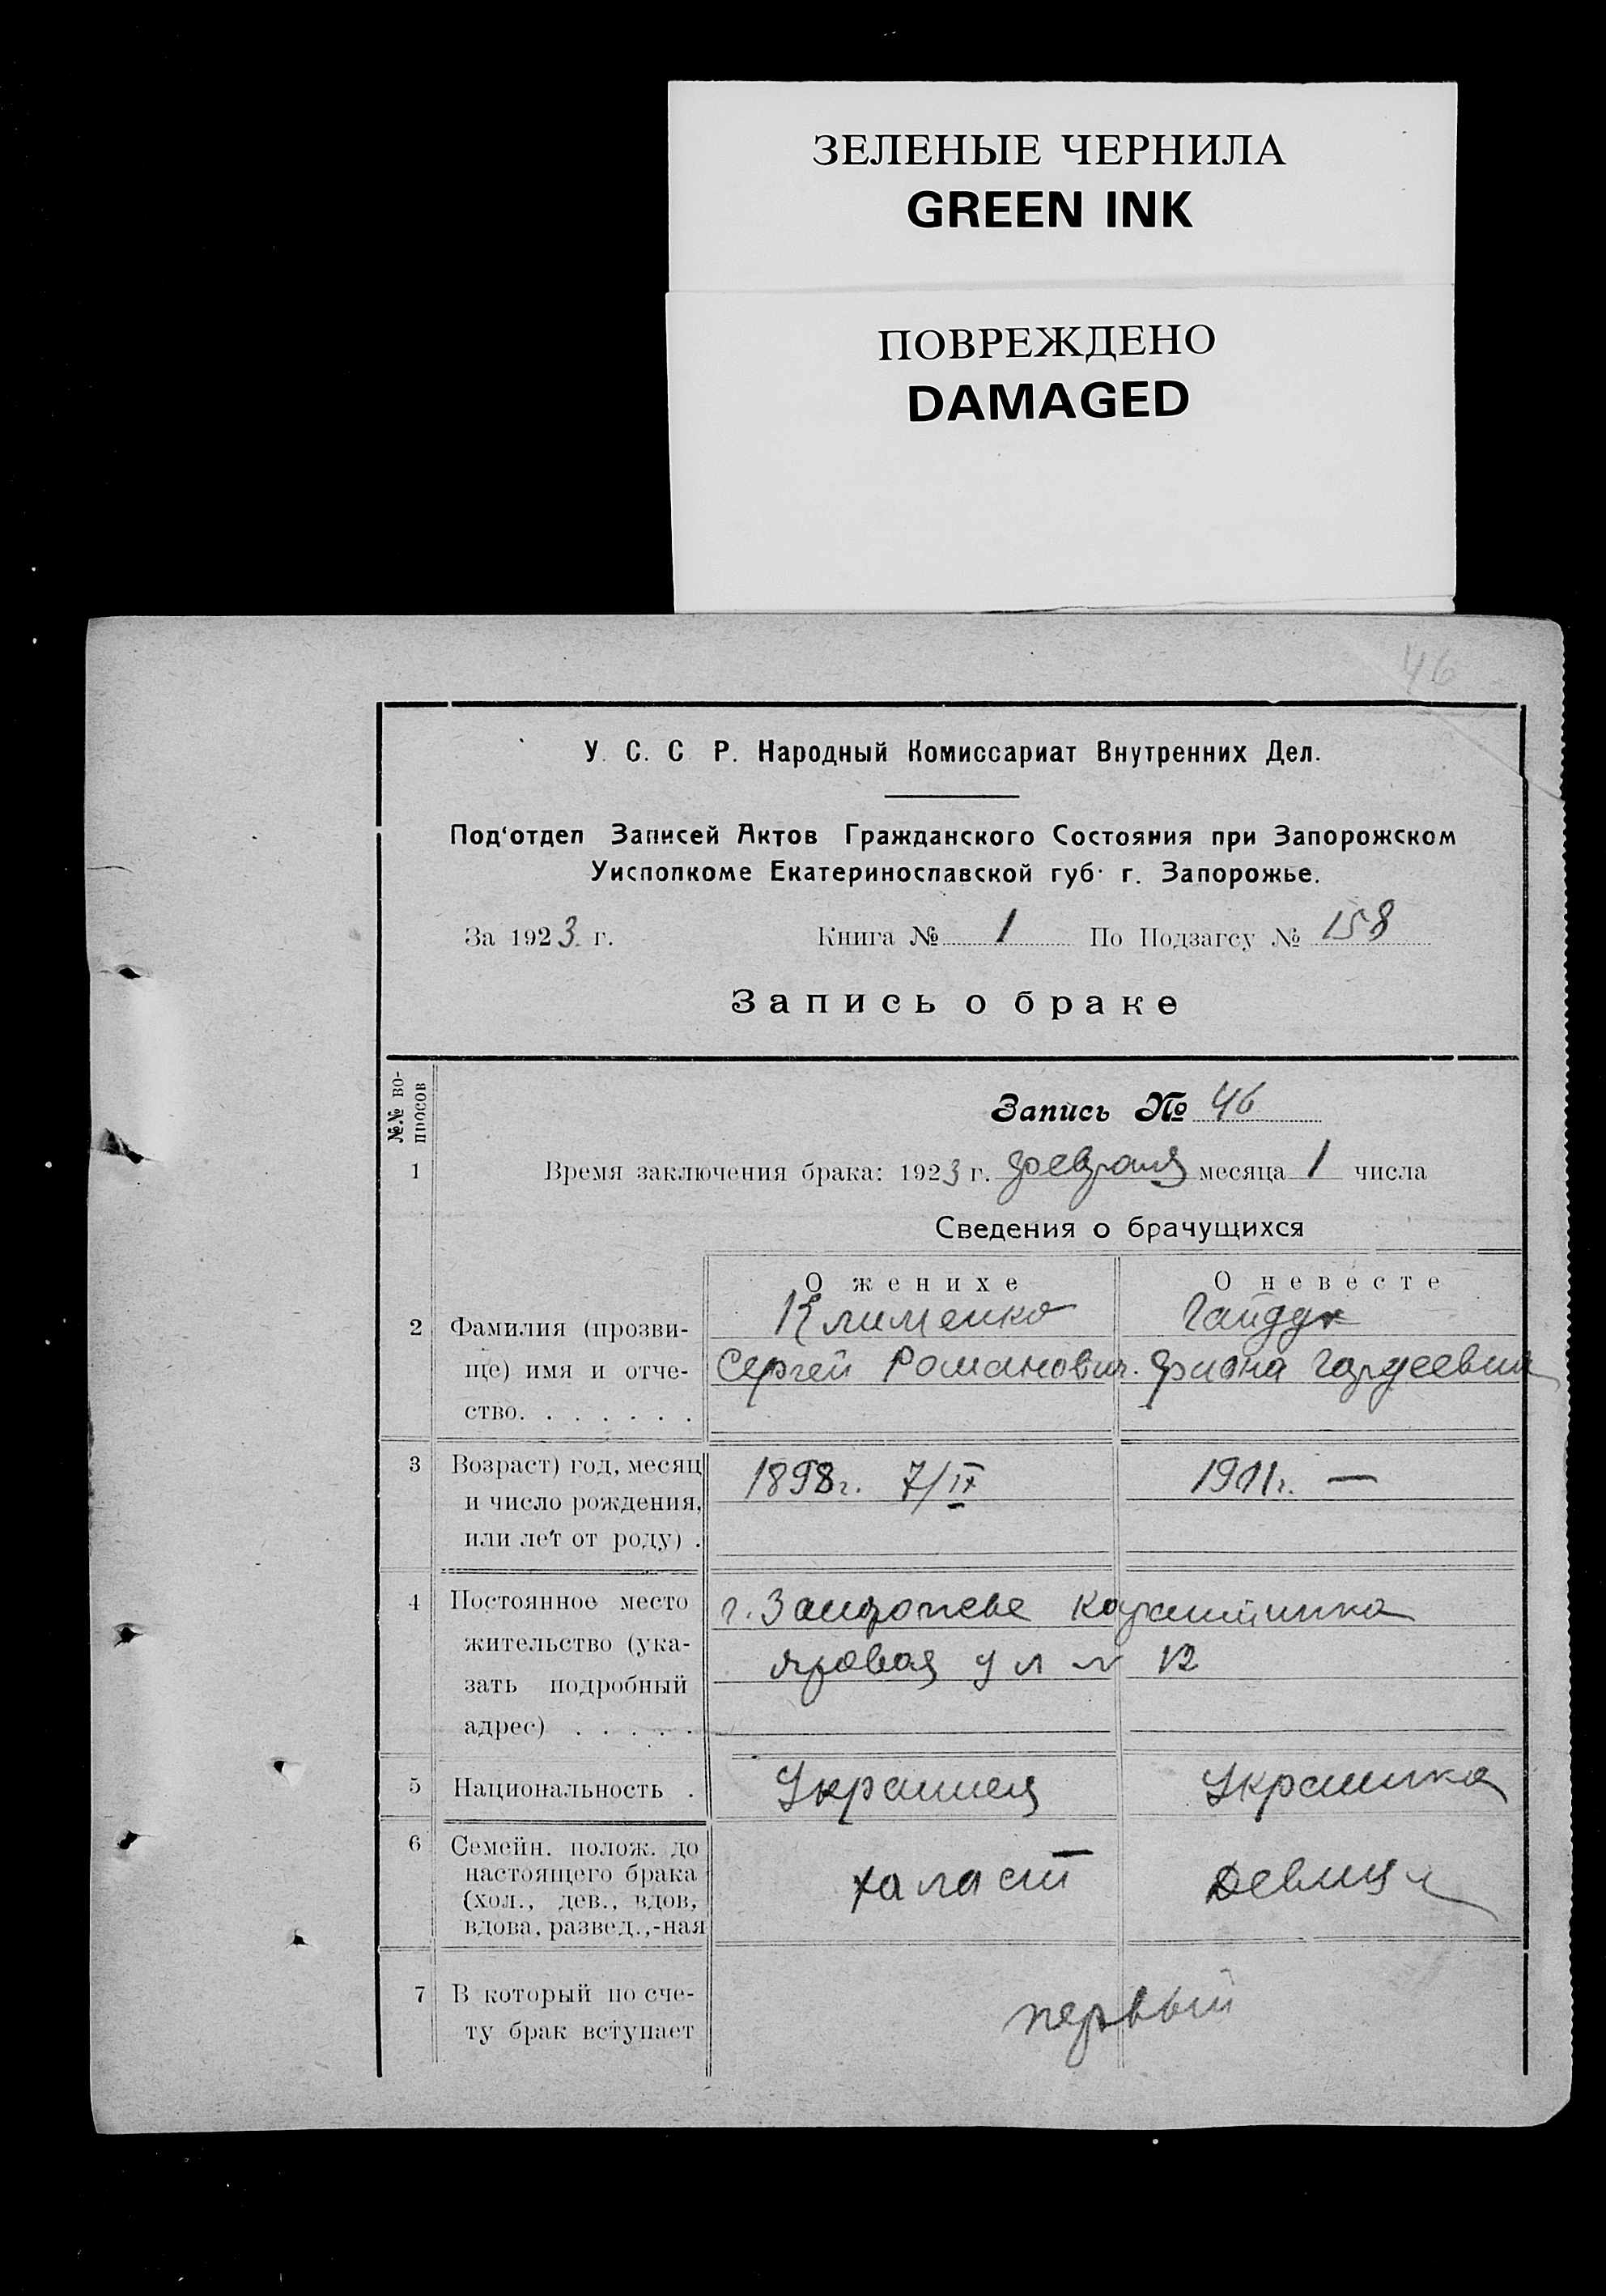 ЗЕЛЕНЫЕ ЧЕРНИЛА
GREEN INK
ПОВРЕЖДЕНО
DAMAGED
46
У. С. С Р. Народный Комиссариат Внутренних Дел.
Под‘отдел Записей Актов Гражданского Состояния при Запорожском
Уисполкоме Екатеринославской губ· г. Запорожье.
За 1923 г. Книга № 1 По Подзагсу № 158
Запись о браке
№№ во-
просов
Запись № 46
1 Время заключения брака: 1923 г. февраля месяца 1 числа
Сведения о брачущихся
О женихе О невесте
2 Фамилия (прозви- Клименко Гайдук
ще) имя и отче- Сергей Романович. Гордеевна
ство. . . . . . .
3 Возраст) год, месяц 1898г. 7/IX 1901г. —
и число рождения,
или лет от роду) .
4 Постоянное место г. Запорожье
жительство (ука- Яровая ул № 12
зать подробный
адрес) . . . . .
5 Национальность . Украинец Украинка
6 Семейн. полож. до
настоящего брака халаст Девица
(хол., дев., вдов,
вдова, развед.,-ная
7 В который по сче- первый
ту брак вступает